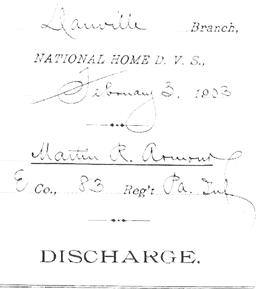 Danville Branch,
NATIONAL HOME D. V. S.,
February 3, 1903
Martin R. Armond
E Co., 83 Reg't Pa. Inf
DISCHARGE.